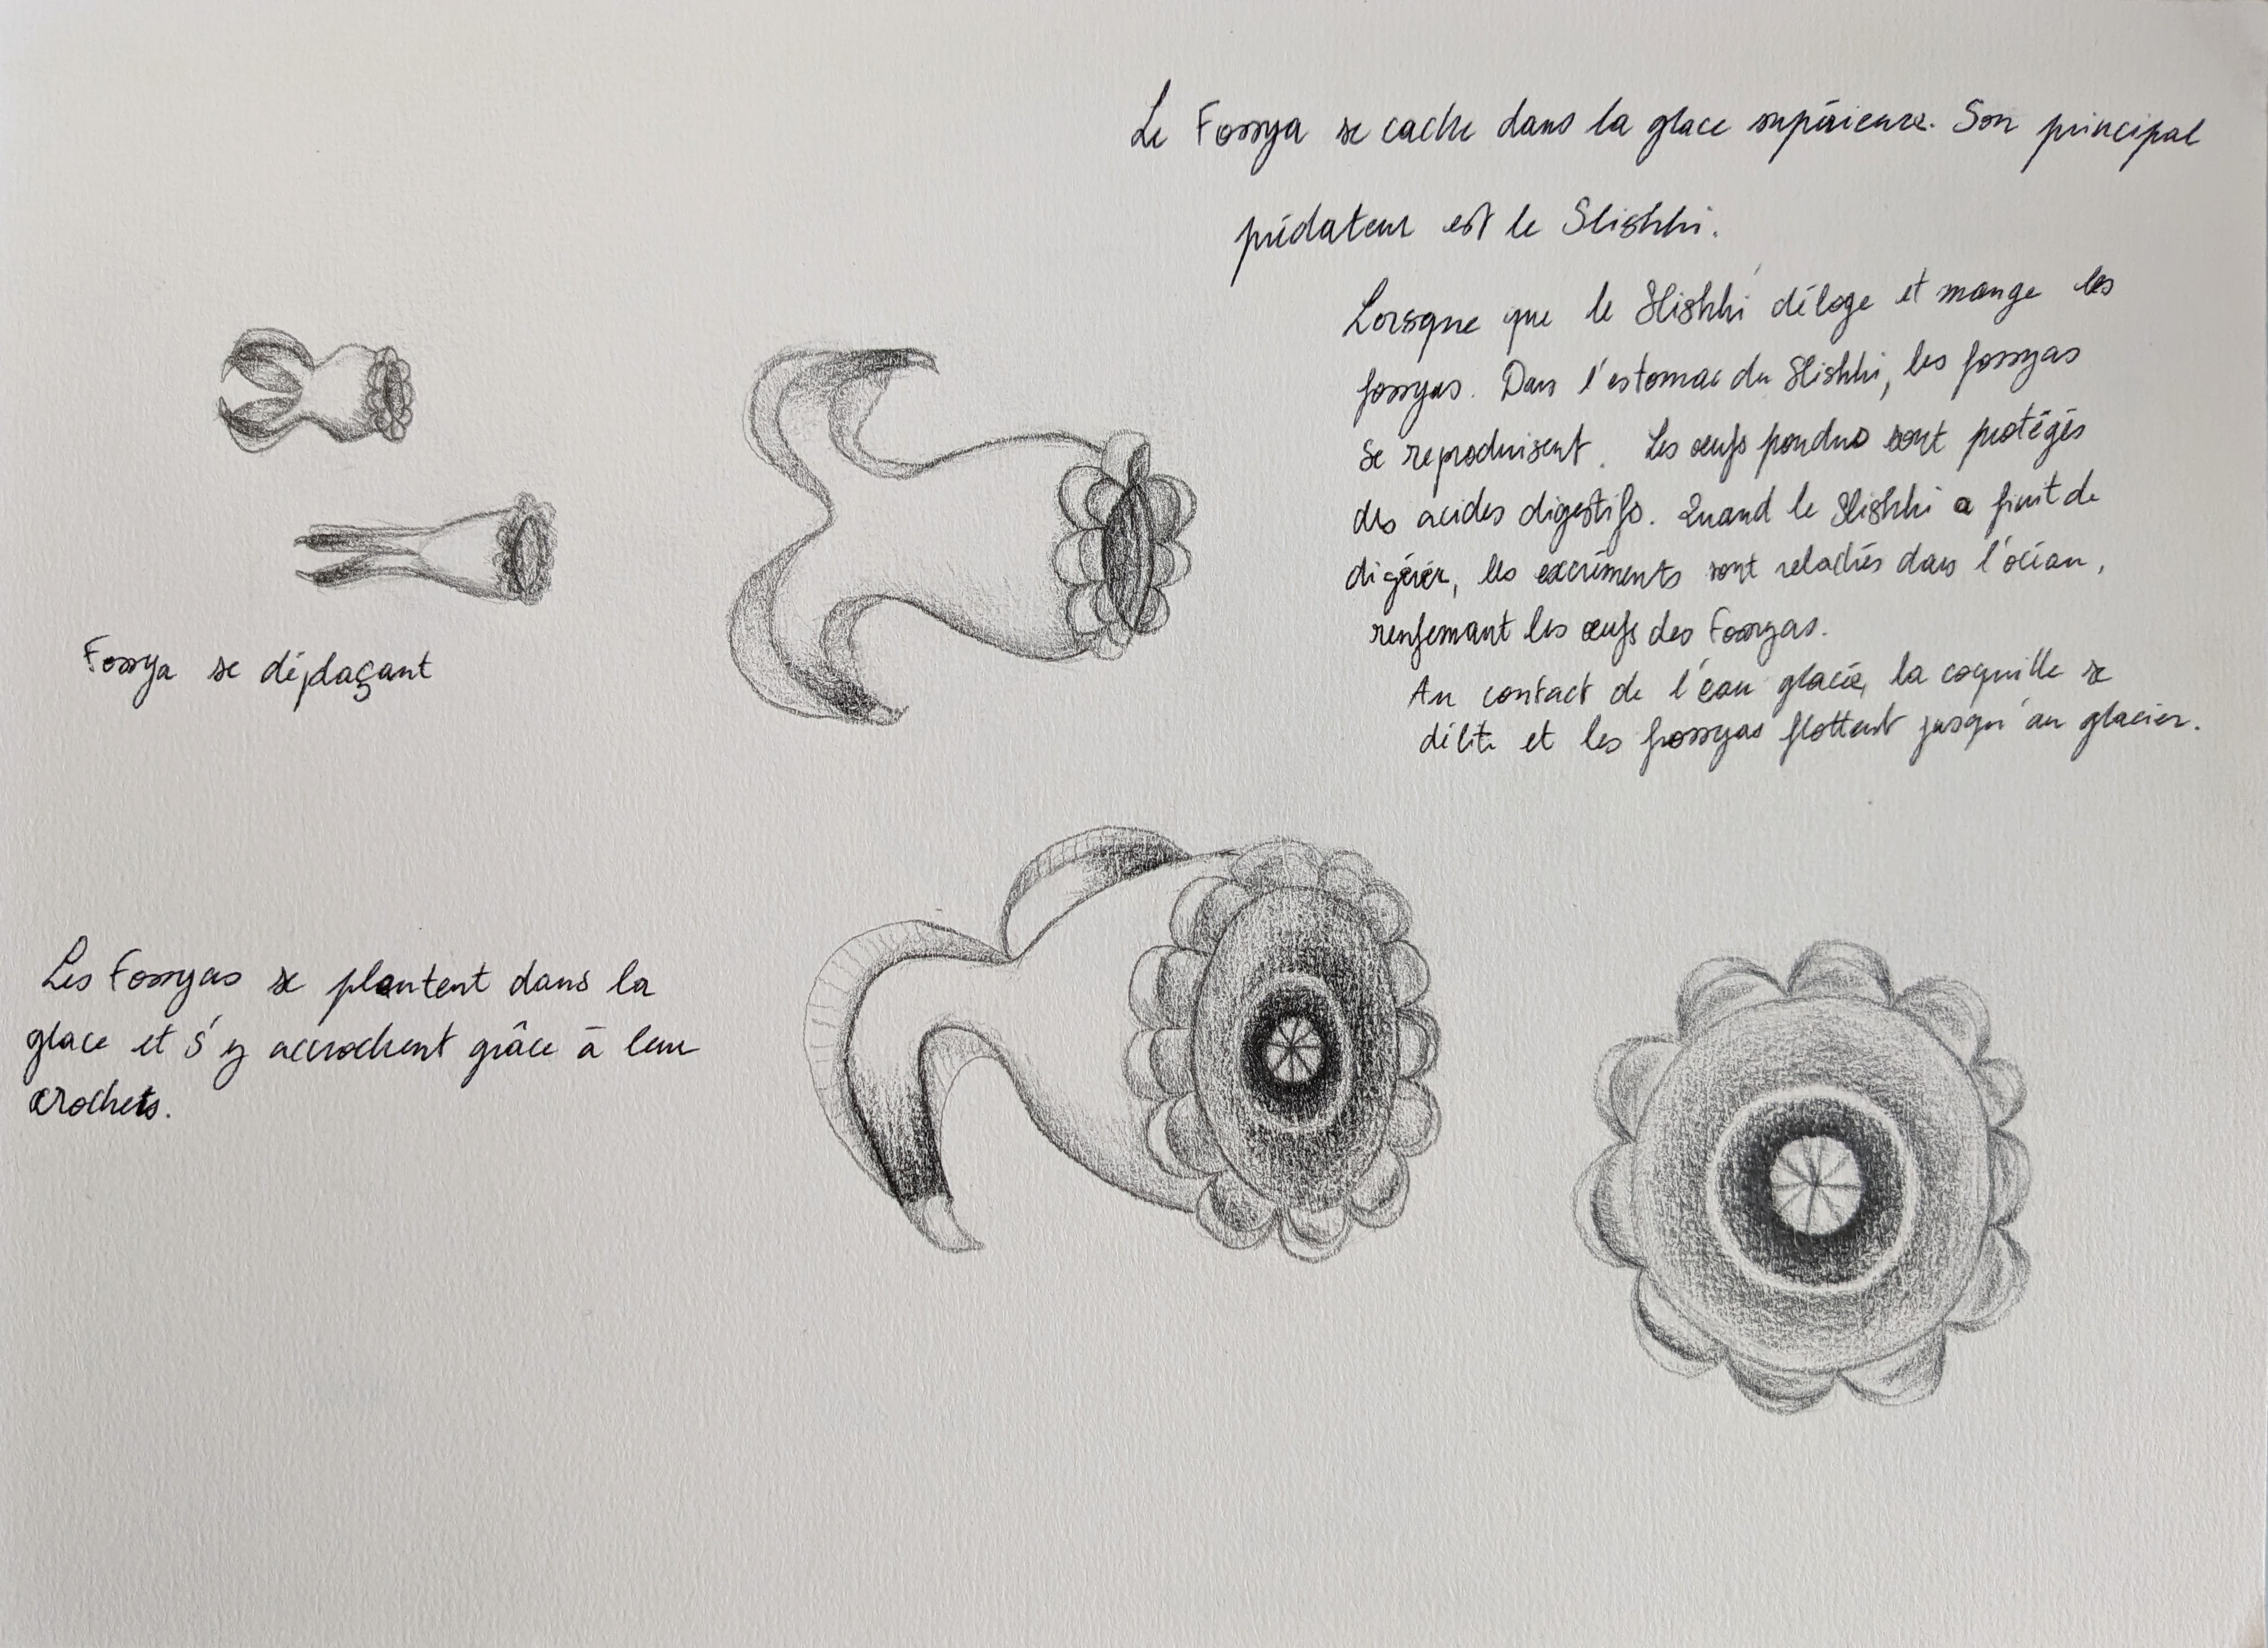 Le Fossya se cache dans la glace supérieure. Son principal
prédateur est le Slishhi.
Lorsque que le Slishhi déloge et mange les
fossyas. Dans l'estomac du Slishhi, les fossyas
se reproduisent. Les œufs pondus sont protégés
des acides digestifs. Quand le Slishhi a finit de
digérér, les excréments sont relachés dans l'océan,
renfemant les œufs des Fossyas.
Au contact de l'eau glacée, la coquille se
délite et les fossyas flottent jusqu'au glacier.
Fossya se déplaçant
Les Fossyas se plantent dans la
glace et s'y accrochent grâce à leur
crochets.